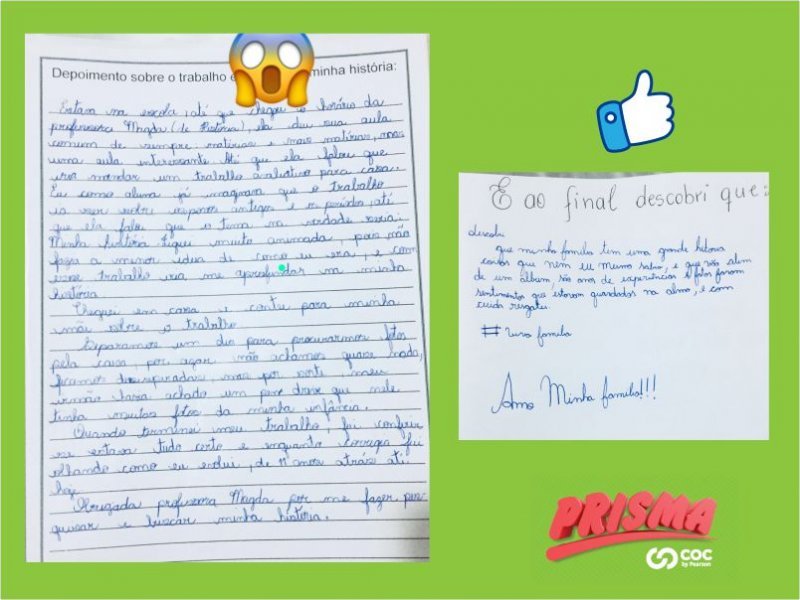 Depoimento sobre o trabalho e minha história:
Estava na escola, até que chegou o horário da
professora Magda (de História), ela deu sua aula
comum de sempre, matérias e mais matérias, mas
uma aula interessante. Até que ela falou que
iria mandar um trabalho avaliativo para casa.
Eu como aluna já imaginava que o trabalho
ia ser sobre impérios antigos e os períodos, até
que ela falou que o tema na verdade seria:
Minha história. Fiquei muito animada, pois não
fazia a menor ideia de como eu era, e com
esse trabalho iria me aprofundar na minha
história.
Cheguei em casa e contei para minha
mãe sobre o trabalho.
Separamos um dia para procurarmos fotos
pela casa, por azar não achamos quase nada,
ficamos desesperadas, mas por sorte, meu
irmão havia achado um pen drive que nele
tinha muitas fotos da minha infância.
Quando terminei meu trabalho, fui conferir
se estava tudo certo e enquanto corrigia fui
olhando como eu evoluí, de 11 anos atrás até
hoje.
Obrigada professora Magda por me fazer pes-
quisar e buscar minha história.
E ao final descobri que:
que minha família tem uma grande história
coisas que nem eu mesmo sabia, e que vão além
de um álbum, são anos de experiências e fotos foram
sentimentos que estavam guardados na alma, e com
cuido resgatei.
família
Amo Minha família!!!
PRISMA
COC
by Pearson